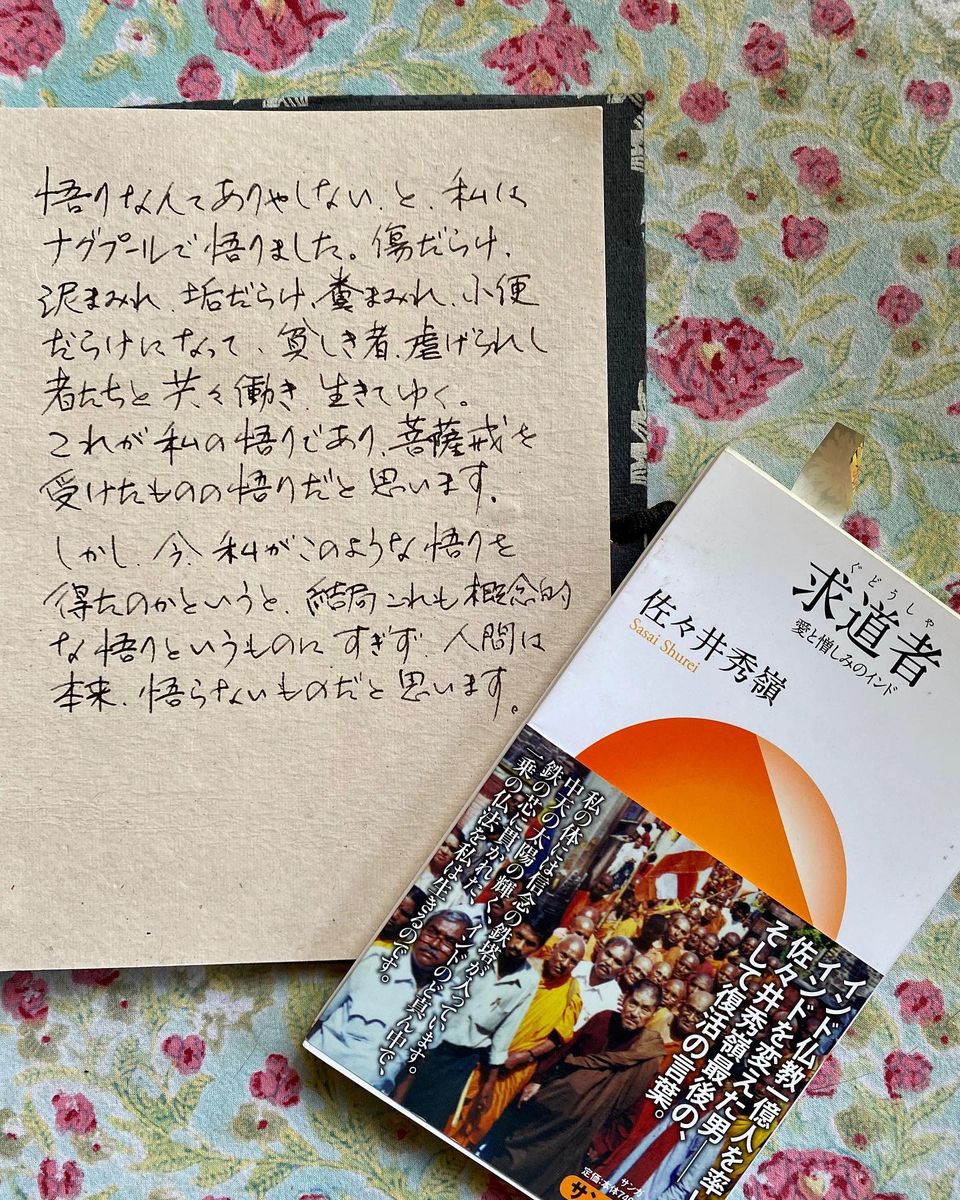 悟りなんてありやしない、と、私は
ナグプールで悟りました。傷だらけ、
泥まみれ、垢だらけ、糞まみれ、小便
だらけになって、貧しき者、虐げられし
者たちと共々働き、生きてゆく。
これが私の悟りであり、菩薩戒を
受けたものの悟りだと思います。
しかし、今、私がこのような悟りを
得たのかというと、結局これも概念的
な悟りというものにすぎず、人間は
本来、悟らないものだと思います。
ぐどうしゃ
求道者
愛と憎しみのインド
佐々井秀嶺
Sasai Shurei
私の体には信念の鉄塔が入っています。
中天の太陽の輝く、インドのど真ん中で、
鉄の芯に貫かれた、
一乗の仏法を私は生きるのです。
インド仏教一億人を率い
インドを変えた男
佐々井秀嶺最後の、
そして復活の言葉。